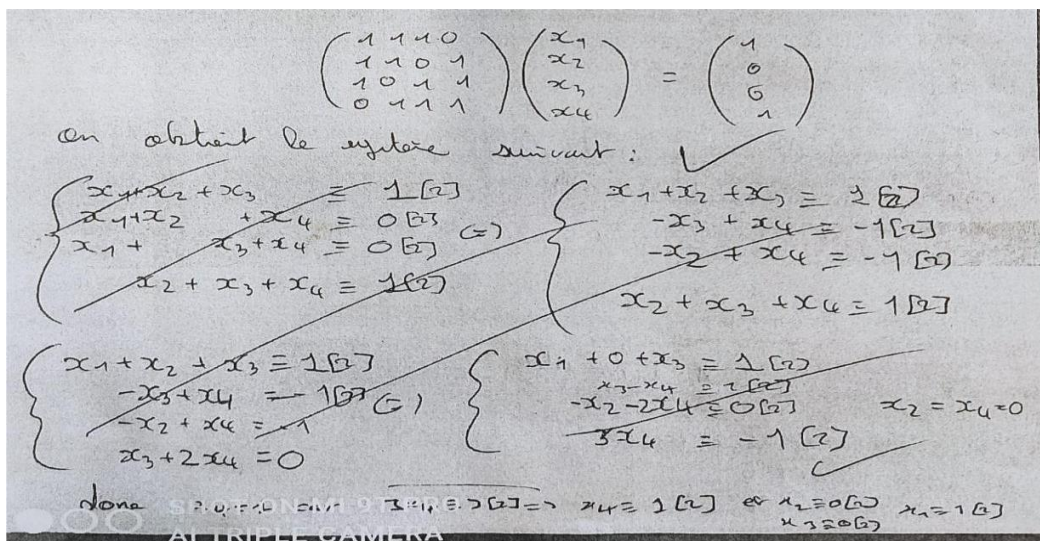 ( 1 1 1 0 ) ( x1 ) = ( 1 )
( 1 1 0 1 ) ( x2 ) ( 0 )
( 1 0 1 1 ) ( x3 ) ( 0 )
( 0 1 1 1 ) ( x4 ) ( 1 )
on obtient le système suivant :
x1+x2+x3 ≡ 1[2]
x1+x2 +x4 ≡ 0[2]
x1+ x3+x4 ≡ 0[2] (=)
x2+x3+x4 ≡ 1[2]
x1+x2+x3 ≡ 1[2]
-x3+x4 ≡ -1[2]
-x2+x4 ≡ -1[2]
x2+x3+x4 ≡ 1[2]
x1+x2+x3 ≡ 1[2]
-x3+x4 = -1[2] (=)
-x2+x4 = -1
x3+2x4 = 0
x1+0+x3 ≡ 1[2]
x3-x4 ≡ 1[2]
-x2-2x4 ≡ 0[2]
3x4 ≡ -1[2]
x2=x4=0
donc => x4 ≡ 1[2] et x2≡0[2] x1≡1[2]
x3≡0[2]
SHOT ON MI 9T PRO
AI TRIPLE CAMERA